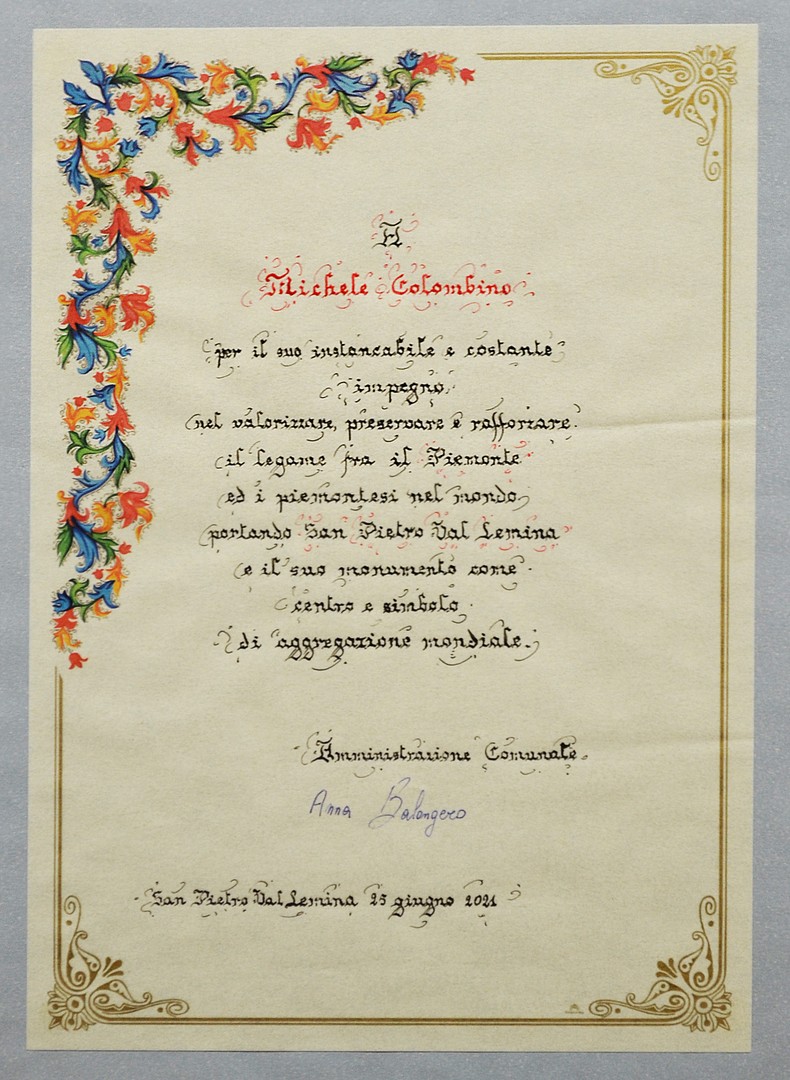 A
Michele Colombino
per il suo instancabile e costante
impegno
nel valorizzare, preservare e rafforzare
il legame fra il Piemonte
ed i piemontesi nel mondo,
portando San Pietro Val Lemina
e il suo monumento come
centro e simbolo
di aggregazione mondiale.
Amministrazione Comunale
Anna Balangero
San Pietro Val Lemina 25 giugno 2021